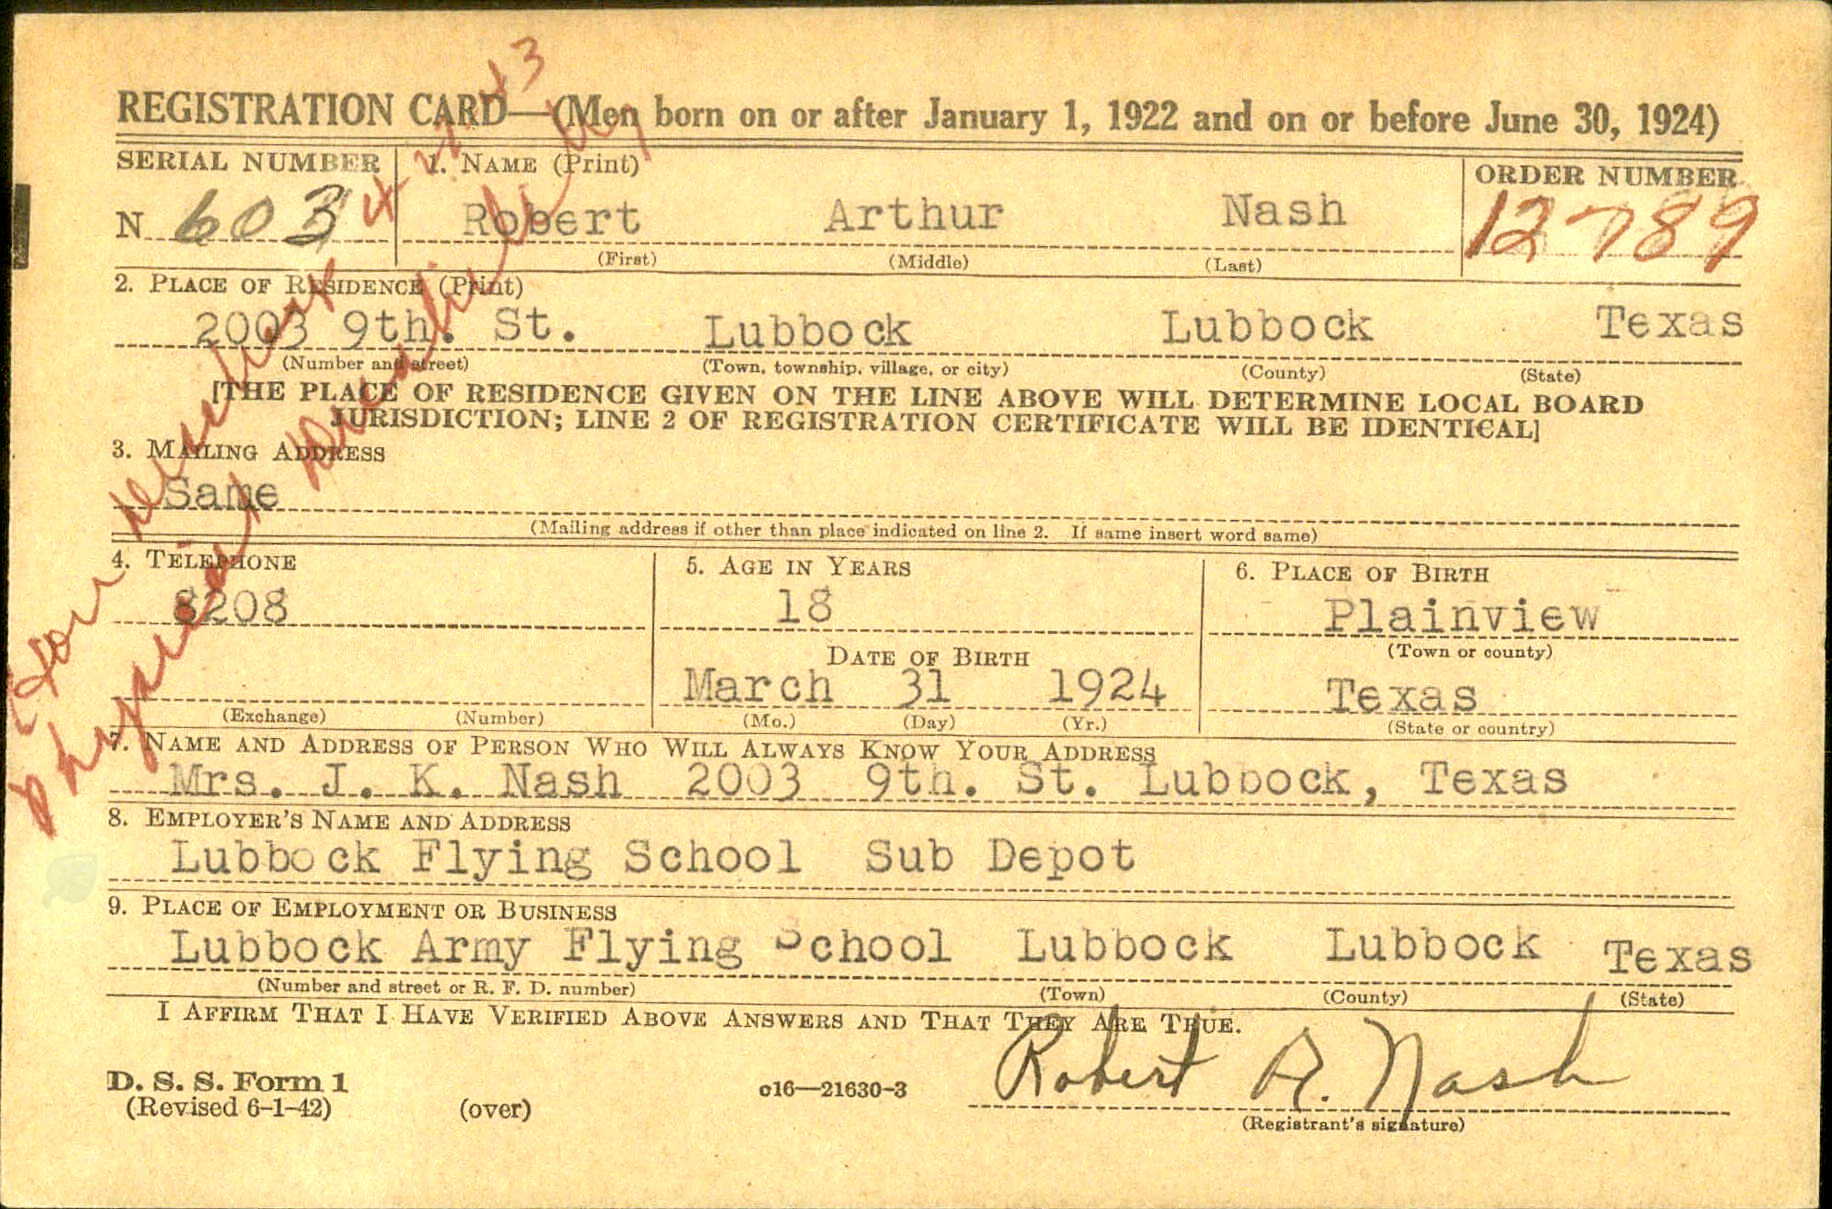 REGISTRATION CARD—(Men born on or after January 1, 1922 and on or before June 30, 1924)
SERIAL NUMBER 1. NAME (Print) ORDER NUMBER
N 603 Robert Arthur Nash 12789
(First) (Middle) (Last)
2. PLACE OF RESIDENCE (Print)
2003 9th. St. Lubbock Lubbock Texas
(Number and street) (Town, township, village, or city) (County) (State)
[THE PLACE OF RESIDENCE GIVEN ON THE LINE ABOVE WILL DETERMINE LOCAL BOARD
JURISDICTION; LINE 2 OF REGISTRATION CERTIFICATE WILL BE IDENTICAL]
3. MAILING ADDRESS
Same
(Mailing address if other than place indicated on line 2. If same insert word same)
4. TELEPHONE 5. AGE IN YEARS 6. PLACE OF BIRTH
8208 18 Plainview
DATE OF BIRTH (Town or county)
March 31 1924 Texas
(Exchange) (Number) (Mo.) (Day) (Yr.) (State or country)
7. NAME AND ADDRESS OF PERSON WHO WILL ALWAYS KNOW YOUR ADDRESS
Mrs. J. K. Nash 2003 9th. St. Lubbock, Texas
8. EMPLOYER'S NAME AND ADDRESS
Lubbock Flying School Sub Depot
9. PLACE OF EMPLOYMENT OR BUSINESS
Lubbock Army Flying School Lubbock Lubbock Texas
(Number and street or R. F. D. number) (Town) (County) (State)
I AFFIRM THAT I HAVE VERIFIED ABOVE ANSWERS AND THAT THEY ARE TRUE.
Robert A. Nash
D. S. S. Form 1
(Revised 6-1-42) (over) c16—21630-3
(Registrant's signature)
physical